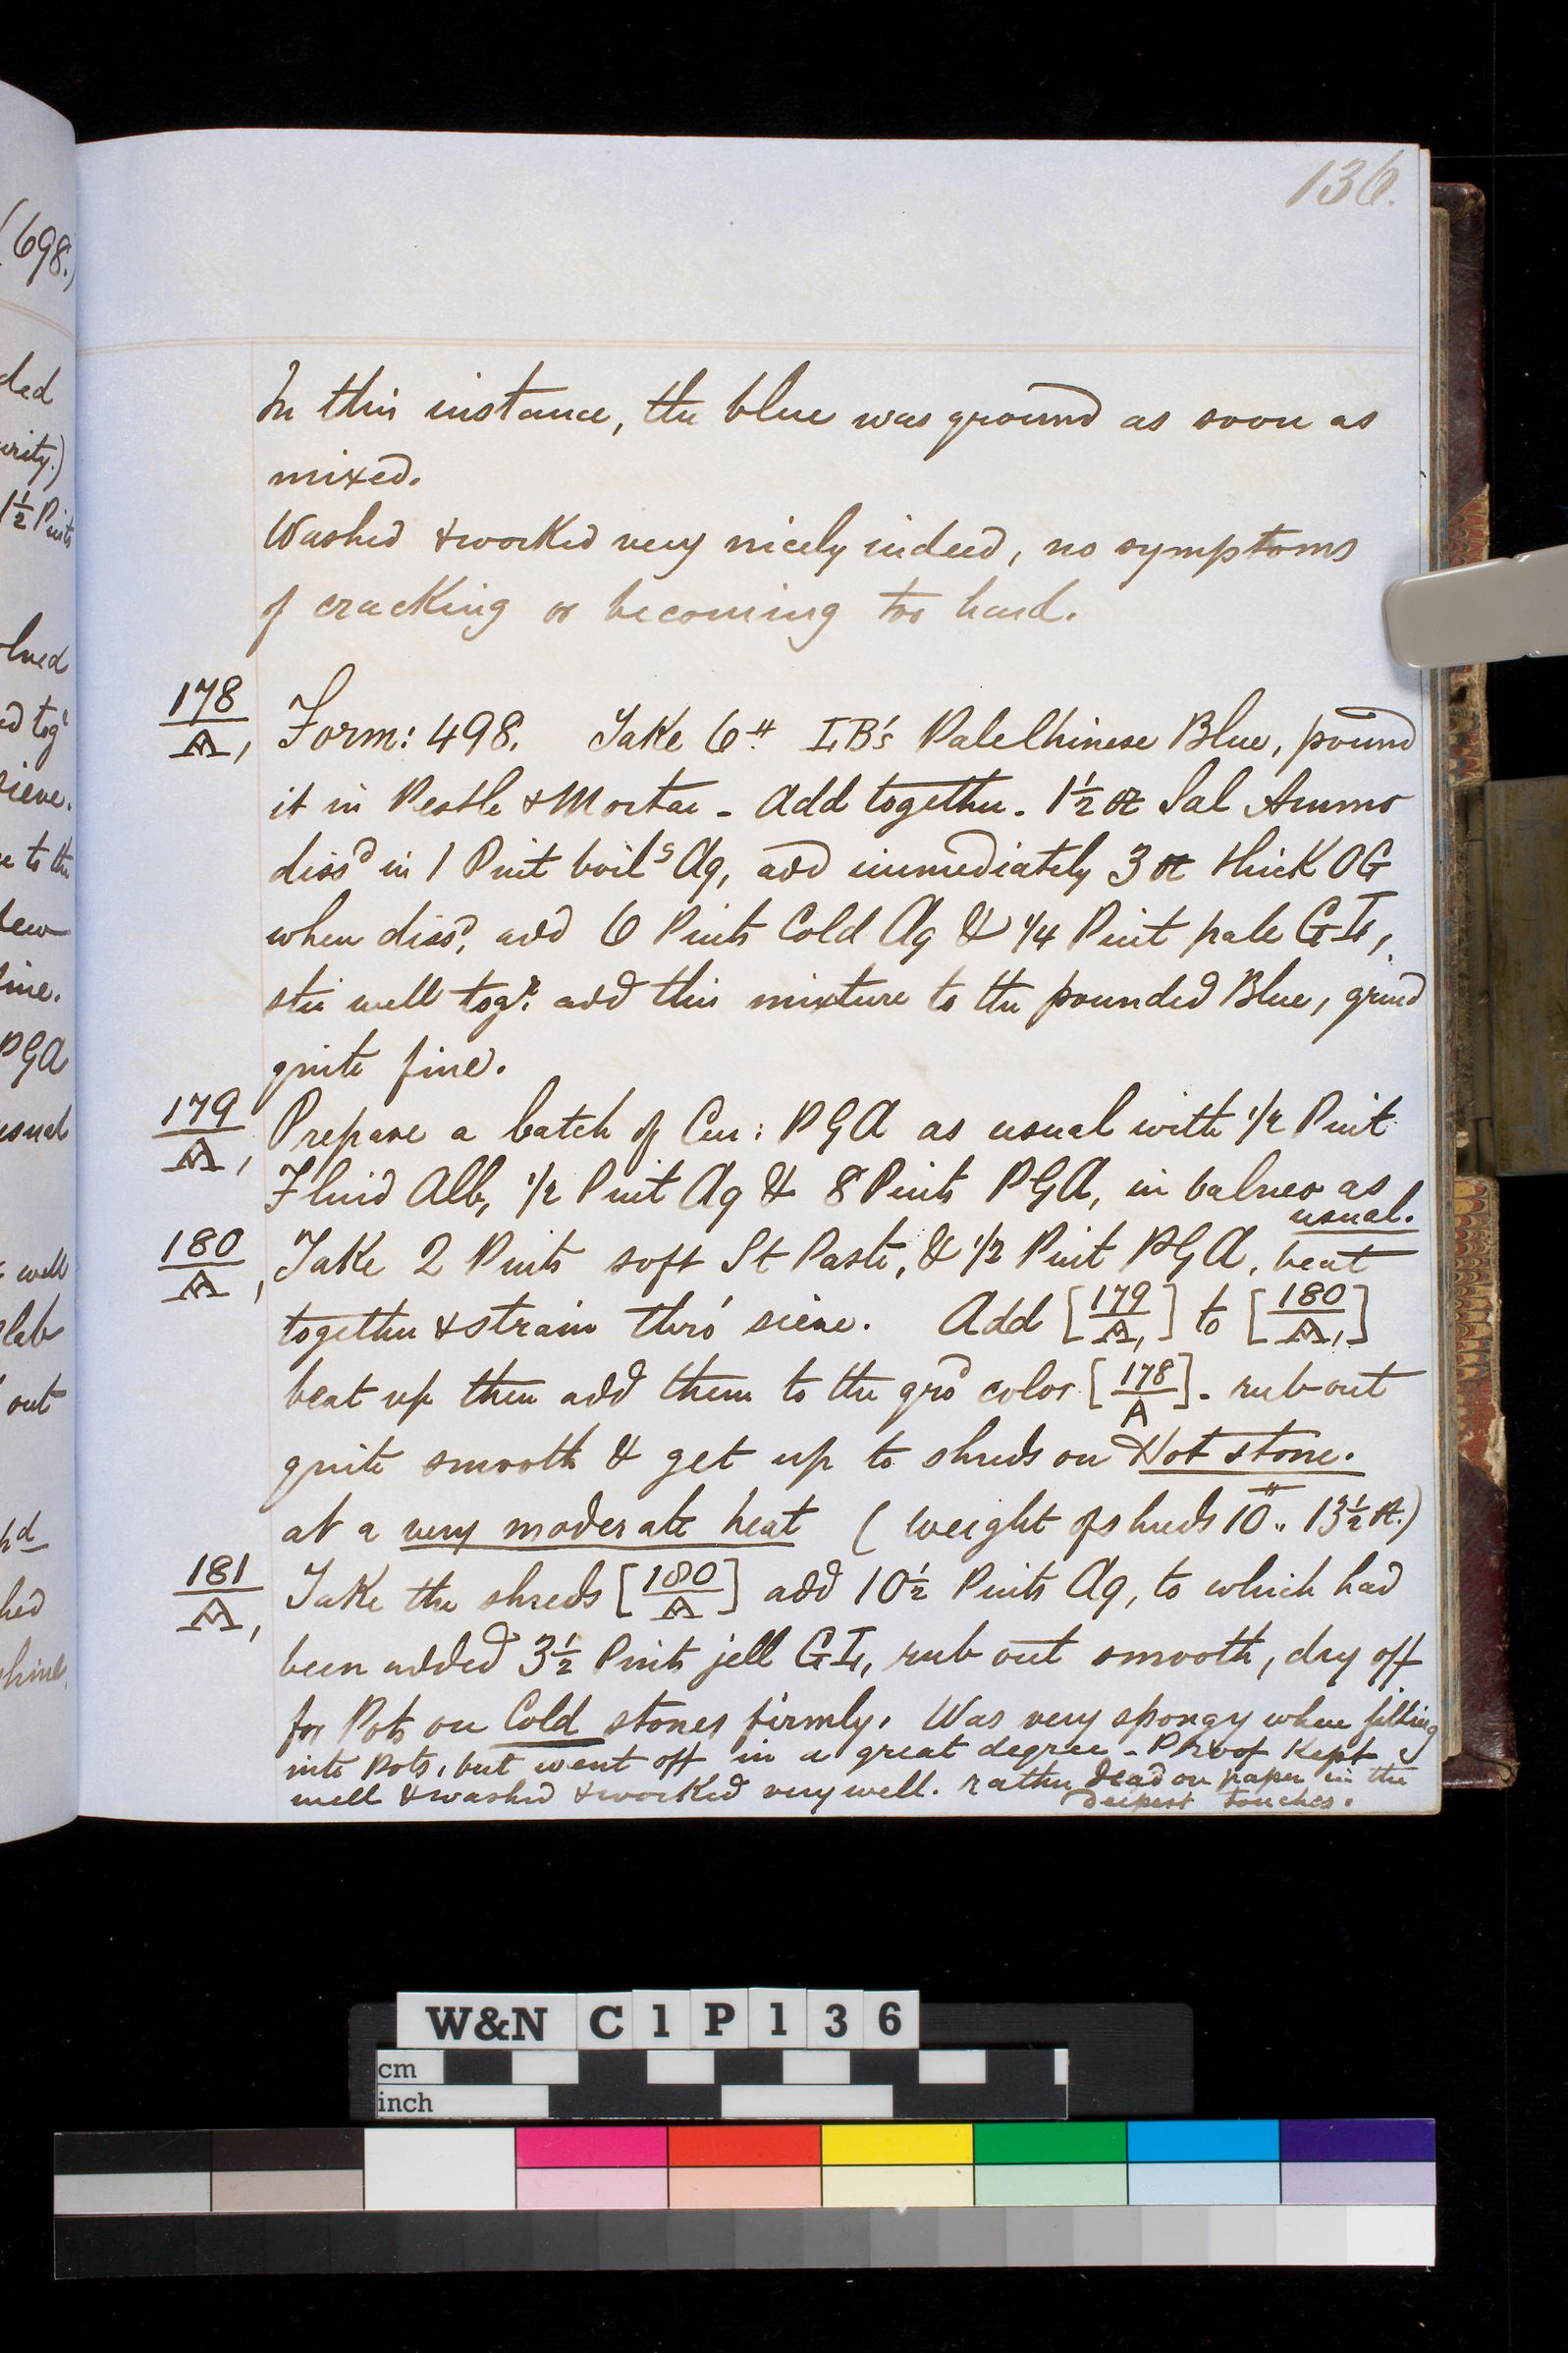 136.
(698.)
In this instance, the blue was ground as soon as
mixed.
Washed & worked very nicely indeed, no symptoms
of cracking or becoming too hard.
178/A, Form: 498. Take 6# LB's Pale Chinese Blue, pound
it in Pestle & Mortar - Add together. 1½ oz Sal Ammo
dissd in 1 Pint boilg Aq, add immediately 3 oz thick OG
when dissd, add 6 Pints Cold Aq & 1/4 Pint pale GL,
stir well togr. add this mixture to the pounded Blue, grind
quite fine.
179/A, Prepare a batch of Cur: PGA as usual with 1/2 Pint
Fluid Alb, 1/2 Pint Aq & 8 Pints PGA, in balneo as
usual.
180/A, Take 2 Pints soft St Paste, & 1/2 Pint PGA, beat
together & strain thro' sieve. Add [179/A,] to [180/A,]
beat up then add them to the grd color [178/A]. rub out
quite smooth & get up to shreds on Hot stone.
at a very moderate heat (weight of shreds 10# .. 13½ oz.)
181/A, Take the shreds [180/A] add 10½ Pints Aq, to which had
been added 3½ Pints jell GL, rub out smooth, dry off
for Pots on Cold stones firmly. Was very spongy when filling
into Pots, but went off in a great degree - Proof Kept
well & washed & worked very well. rather dead on paper in the
deepest touches.
W&N C1P136
cm
inch